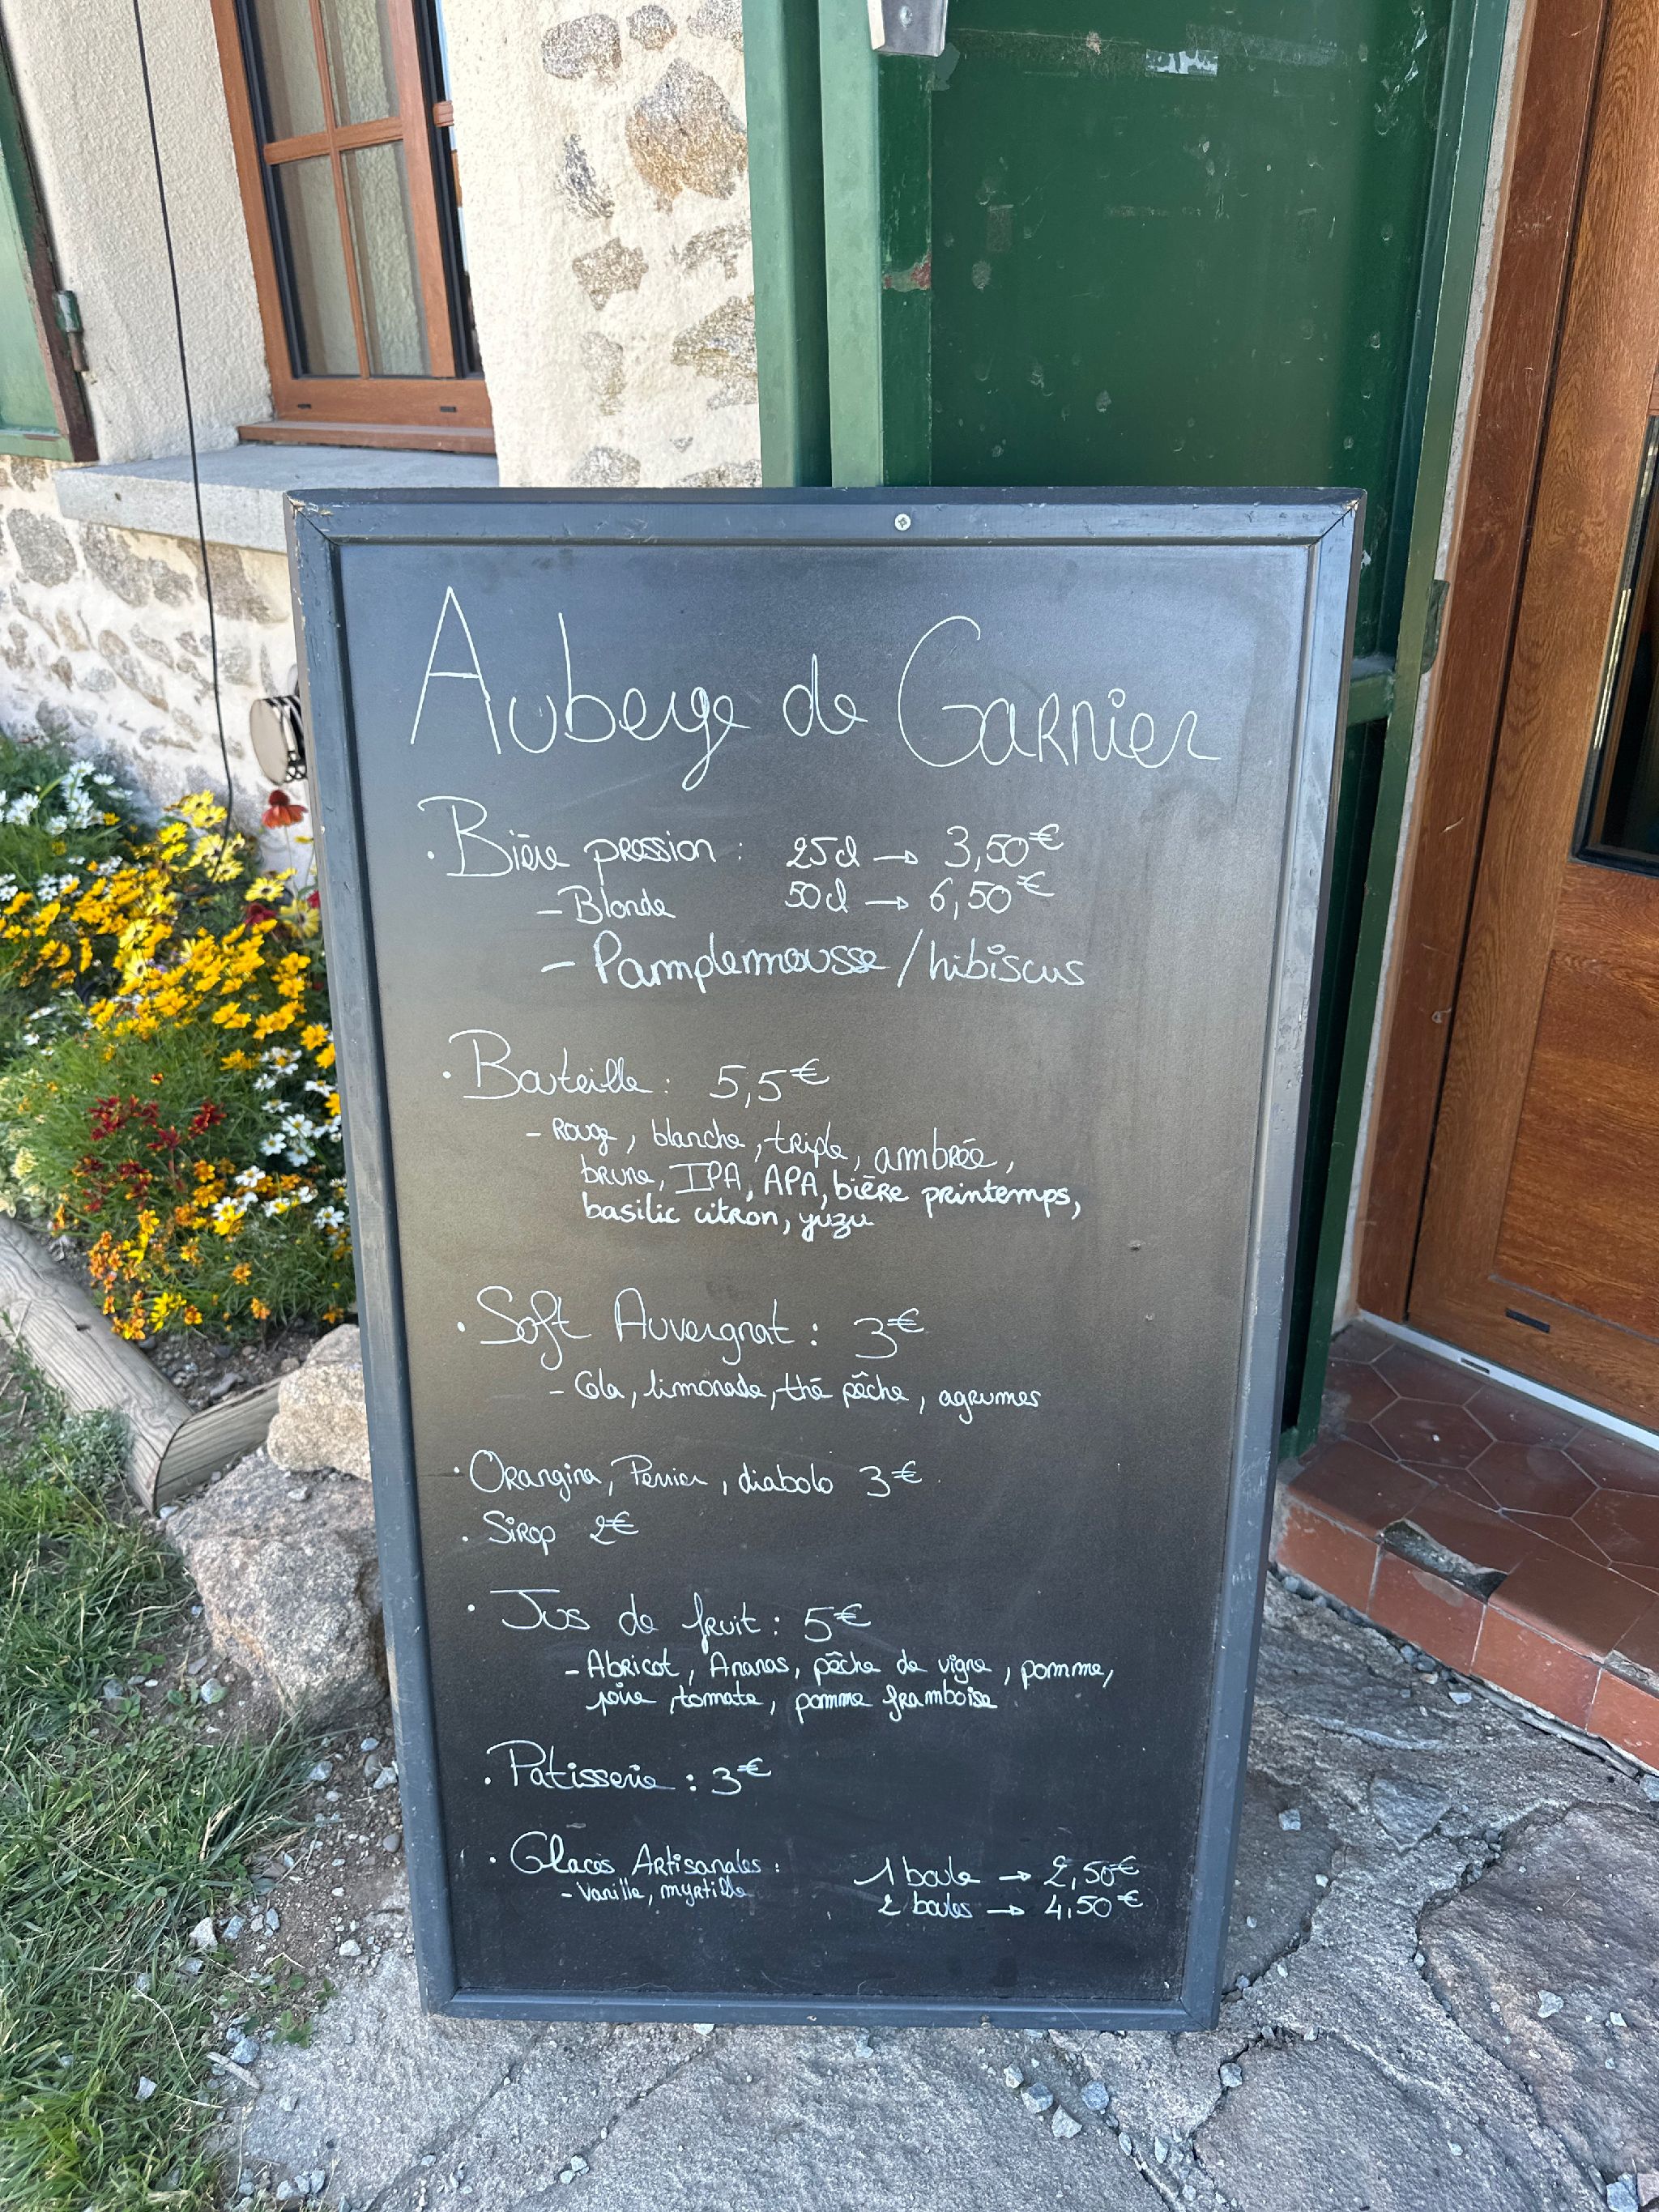 Auberge de Garnier
• Bière pression : 25cl → 3,50€
- Blonde 50cl → 6,50€
- Pamplemousse / hibiscus
• Bouteille : 5,5€
- Rouge, blanche, triple, ambrée,
brune, IPA, APA, bière printemps,
basilic citron, yuzu
• Soft Auvergnat : 3€
- Cola, limonade, thé pêche, agrumes
• Orangina, Perrier, diabolo 3€
• Sirop 2€
• Jus de fruit : 5€
- Abricot, Ananas, pêche de vigne, pomme,
poire, tomate, pomme framboise
• Patisserie : 3€
• Glaces Artisanales : 1 boule → 2,50€
- Vanille, myrtille 2 boules → 4,50€